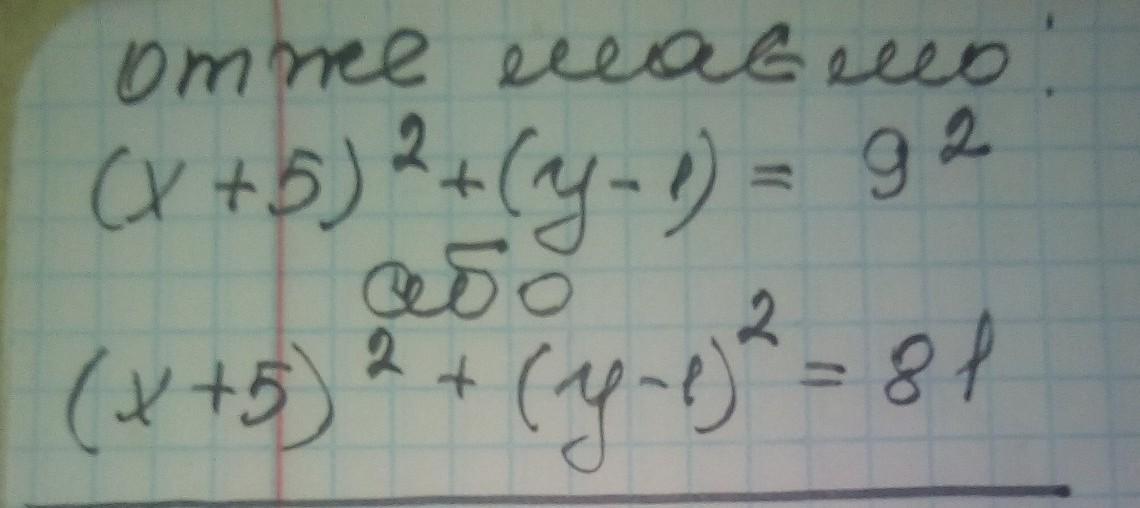 отже маємо:
(x + 5)² + (y - 1) = 9²
або
(x + 5)² + (y - 1)² = 81